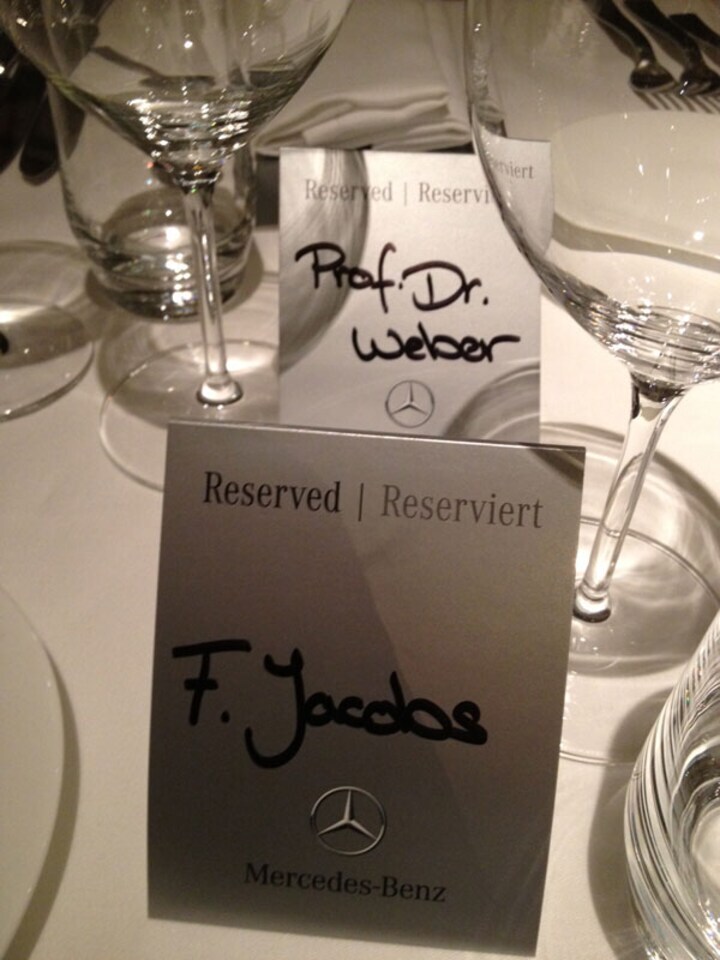 Reserved | Reservi
erviert
Prof. Dr.
Weber
Reserved | Reserviert
F. Jacobs
Mercedes-Benz